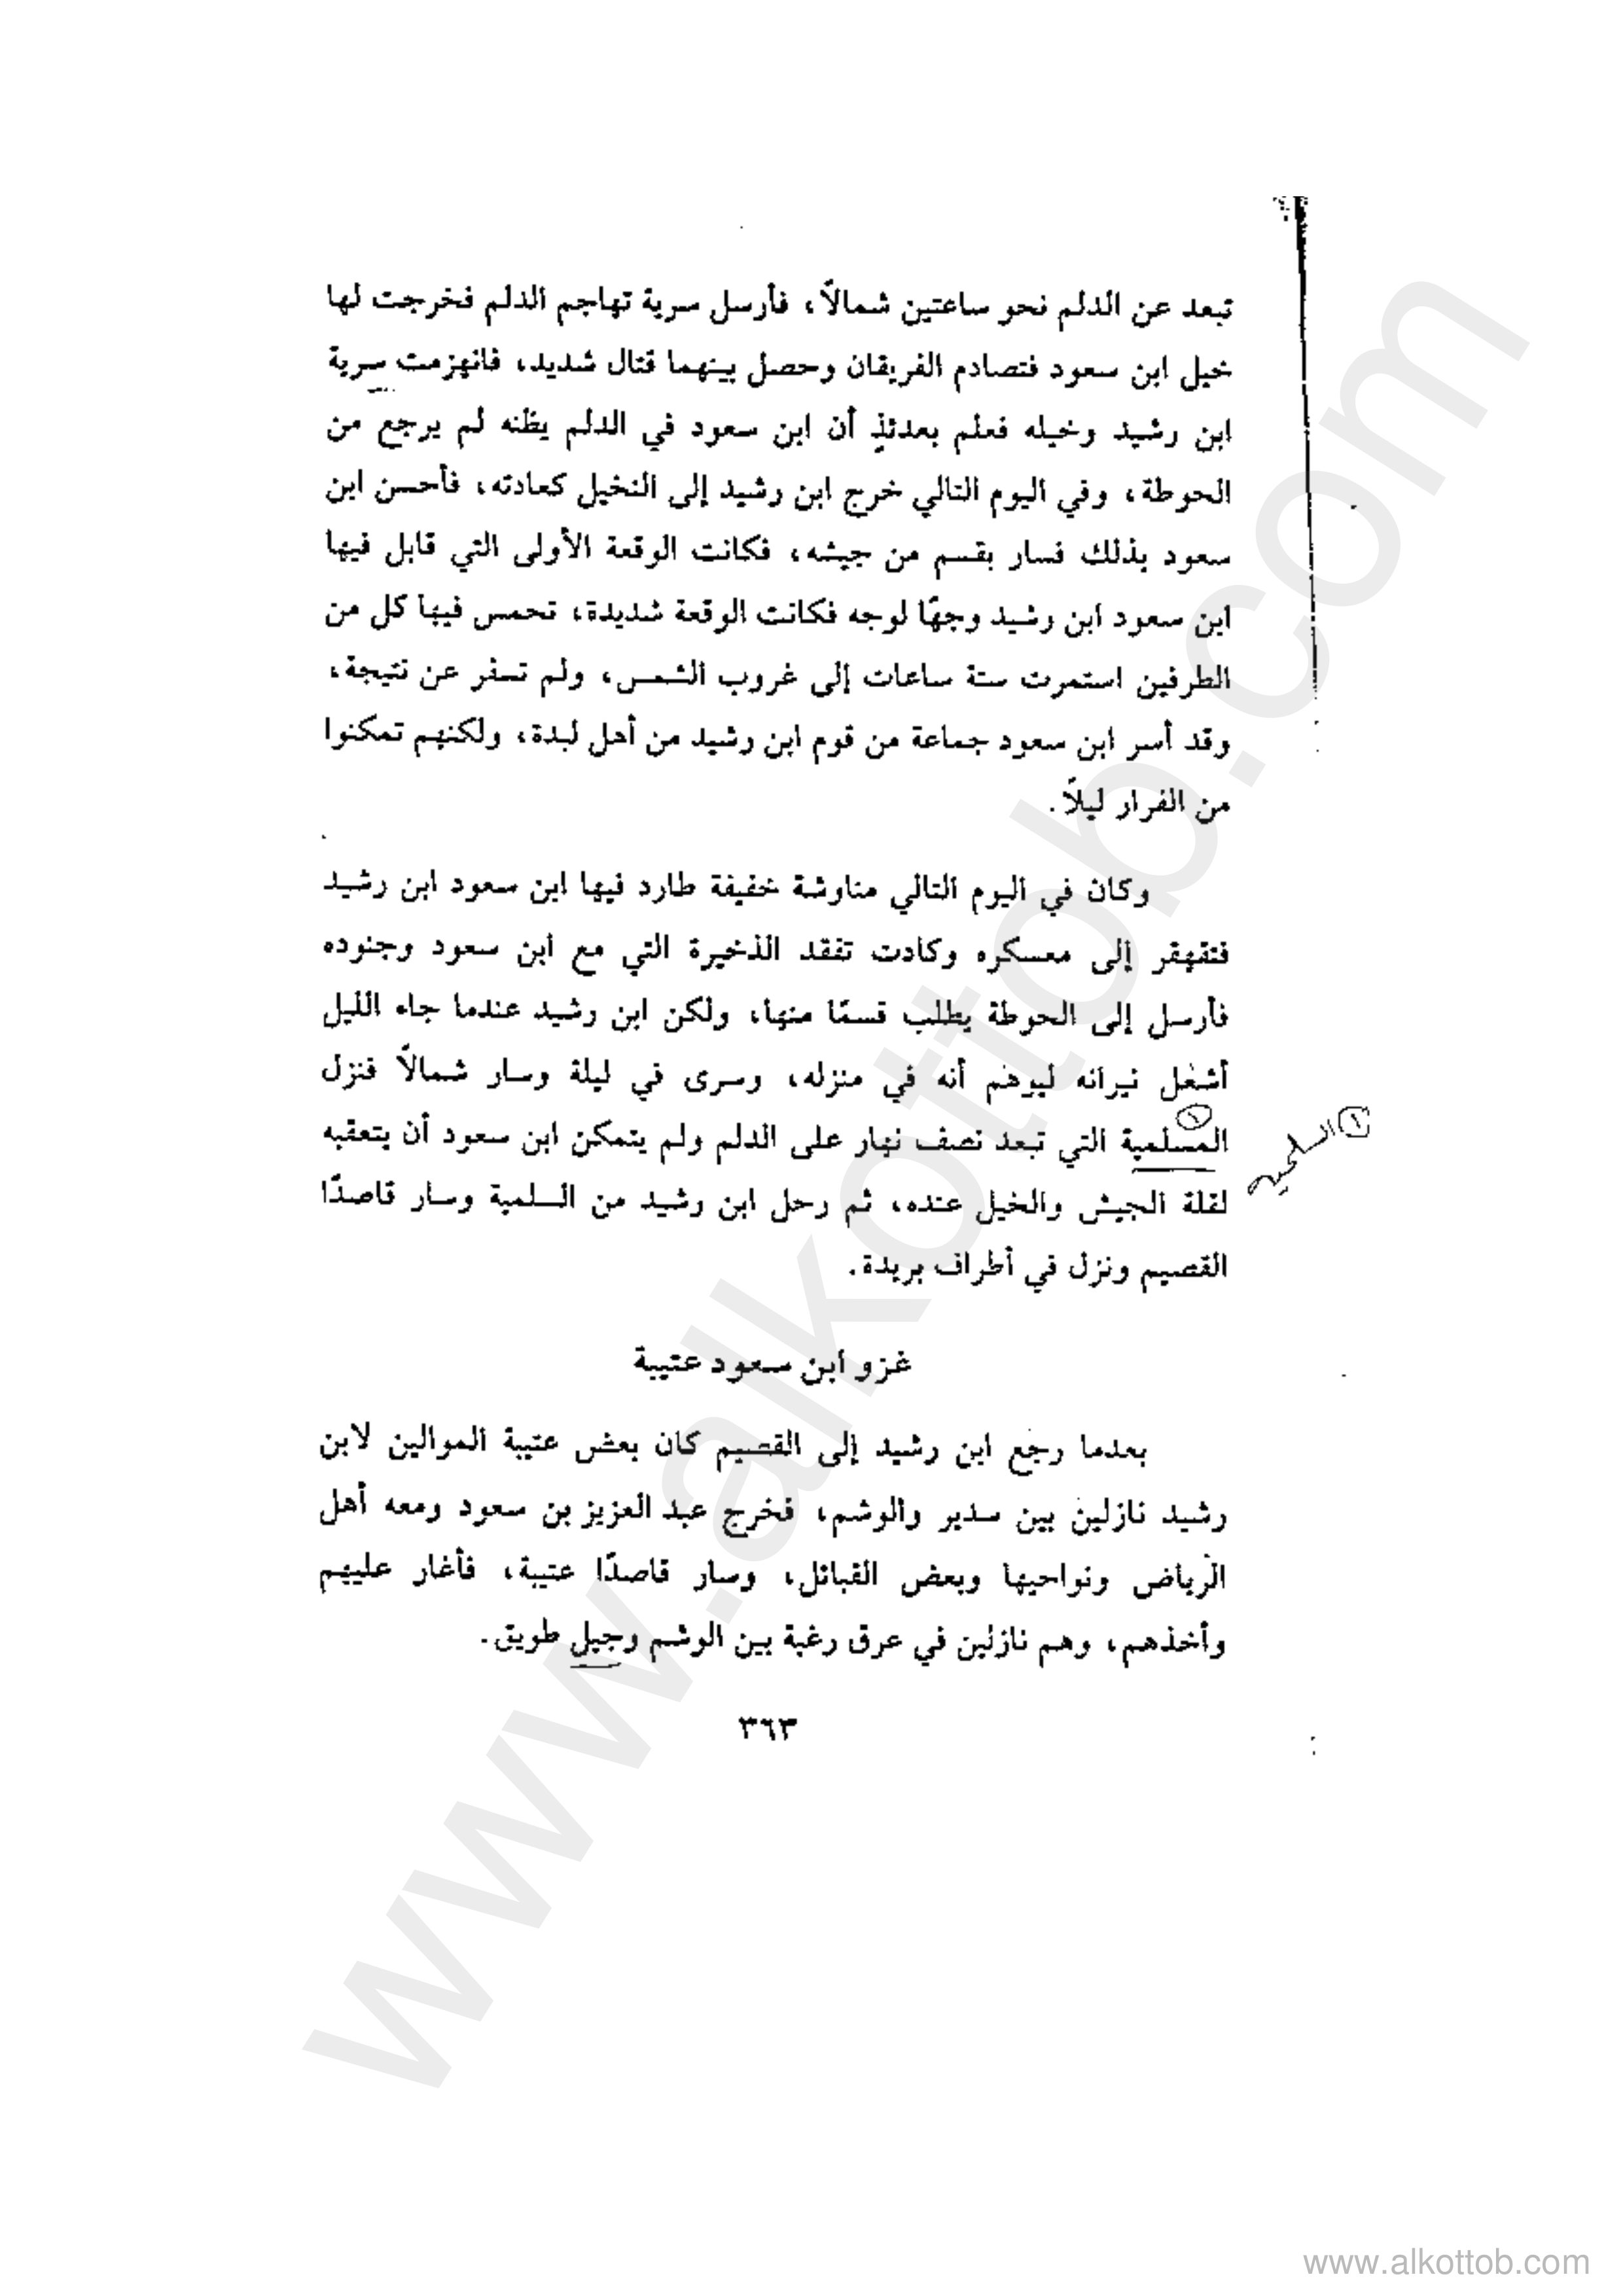 تبعد عن الدلم نحو ساعتين شمالاً، فأرسل سرية تهاجم الدلم فخرجت لها
خيل ابن سعود فتصادم الفريقان وحصل بينهما قتال شديد، فانهزمت سرية
ابن رشيد وخيله فعلم بعدئذٍ أن ابن سعود في الدلم يظنه لم يرجع من
الحوطة، وفي اليوم التالي خرج ابن رشيد إلى النخيل كعادته، فأحسن ابن
سعود بذلك فسار بقسم من جيشه، فكانت الوقعة الأولى التي قابل فيها
ابن سعود ابن رشيد وجهًا لوجه فكانت الوقعة شديدة، تحمس فيها كل من
الطرفين استمرت ستة ساعات إلى غروب الشمس، ولم تسفر عن نتيجة،
وقد أسر ابن سعود جماعة من قوم ابن رشيد من أهل لبدة، ولكنهم تمكنوا
من الفرار ليلاً.
وكان في اليوم التالي مناوشة خفيفة طارد فيها ابن سعود ابن رشيد
فتقهقر إلى معسكره وكادت تفقد الذخيرة التي مع ابن سعود وجنوده
فأرسل إلى الحوطة يطلب قسمًا منها، ولكن ابن رشيد عندما جاء الليل
أشعل نيرانه ليوهم أنه في منزله، وسرى في ليلة وسار شمالاً فنزل
المسلمية التي تبعد نصف نهار على الدلم ولم يتمكن ابن سعود أن يتعقبه
١ السلمية
لقلة الجيش والخيل عنده، ثم رحل ابن رشيد من السلمية وسار قاصدًا
القصيم ونزل في أطراف بريدة.
غزو ابن سعود عتيبة
بعدما رجع ابن رشيد إلى القصيم كان بعض عتيبة الموالين لابن
رشيد نازلين بين سدير والوشم، فخرج عبد العزيز بن سعود ومعه أهل
الرياض ونواحيها وبعض القبائل، وسار قاصدًا عتيبة، فأغار عليهم
وأخذهم، وهم نازلين في عرق رغبة بين الوشم وجبل طويق.
٣٦٣
www.alkottob.com
www.alkottob.com